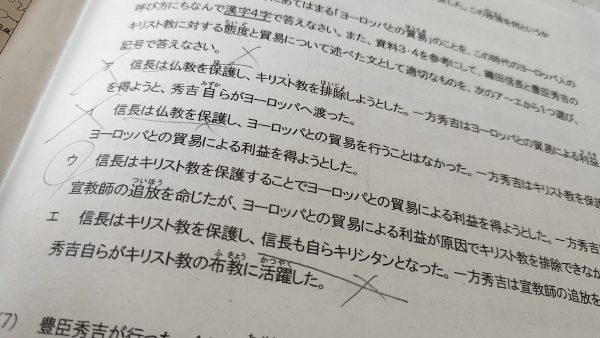 にあてはまる「ヨーロッパとの貿易」のことを、この時代のヨーロッパ人の
呼び方にちなんで漢字4字で答えなさい。また、資料3・4を参考にして、織田信長と豊臣秀吉の
キリスト教に対する態度と貿易について述べた文として適切なものを、次のア~エから1つ選び、
記号で答えなさい。
ア 信長は仏教を保護し、キリスト教を排除しようとした。一方秀吉はヨーロッパとの貿易による利益
を得ようと、秀吉自らがヨーロッパへ渡った。
イ 信長は仏教を保護し、ヨーロッパとの貿易を行うことはなかった。一方秀吉はキリスト教を保
ヨーロッパとの貿易による利益を得ようとした。
ウ 信長はキリスト教を保護することでヨーロッパとの貿易による利益を得ようとした。一方秀吉
宣教師の追放を命じたが、ヨーロッパとの貿易による利益が原因でキリスト教を排除できなか
エ 信長はキリスト教を保護し、信長も自らキリシタンとなった。一方秀吉は宣教師の追放を
秀吉自らがキリスト教の布教に活躍した。
(7) 豊臣秀吉が行った